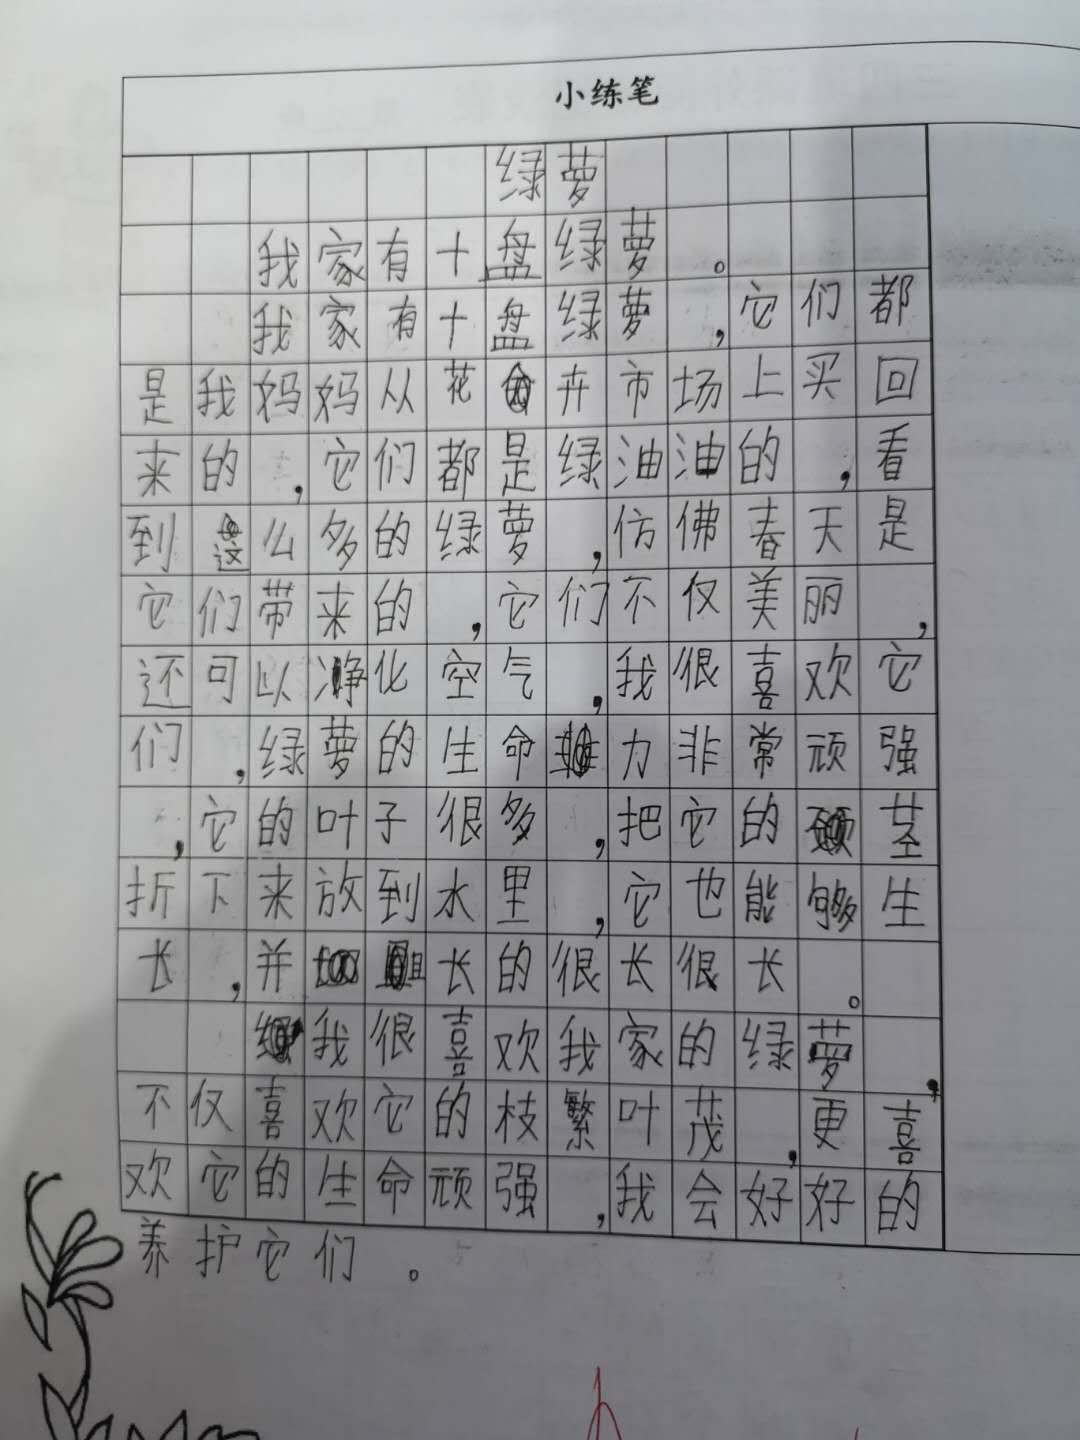 小练笔
绿萝
我家有十盘绿萝。
我家有十盘绿萝，它们都
是我妈妈从花卉市场上买回
来的，它们都是绿油油的，看
到这么多的绿萝，仿佛春天是
它们带来的，它们不仅美丽，
还可以净化空气，我很喜欢它
们，绿萝的生命力非常顽强
，它的叶子很多，把它的茎
折下来放到水里，它也能够生
长，并且长的很长很长。
我很喜欢我家的绿萝，
不仅喜欢它的枝繁叶茂，更喜
欢它的生命顽强，我会好好的
养护它们。